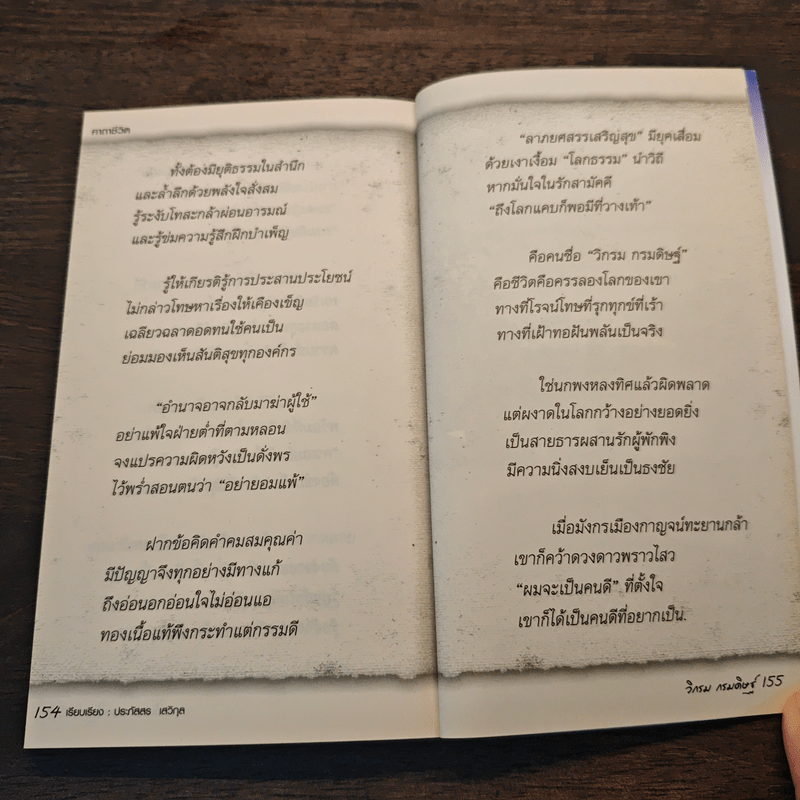 คาถาชีวิต
ทั้งต้องมียุติธรรมในสำนึก
และล้ำลึกด้วยพลังใจสั่งสม
รู้ระงับโทสะกล้าผ่อนอารมณ์
และรู้ข่มความรู้สึกฝึกบำเพ็ญ
รู้ให้เกียรติรู้การประสานประโยชน์
ไม่กล่าวโทษหาเรื่องให้เคืองเข็ญ
เฉลียวฉลาดอดทนใช้คนเป็น
ย่อมมองเห็นสันติสุขทุกองค์กร
"อำนาจอาจกลับมาฆ่าผู้ใช้"
อย่าแพ้ใจฝ่ายต่ำที่ตามหลอน
จงแปรความผิดหวังเป็นดั่งพร
ไว้พร่ำสอนตนว่า "อย่ายอมแพ้"
ฝากข้อคิดคำคมสมคุณค่า
มีปัญญาจึงทุกอย่างมีทางแก้
ถึงอ่อนอกอ่อนใจไม่อ่อนแอ
ทองเนื้อแท้พึงกระทำแต่กรรมดี
154 เรียบเรียง : ประภัสสร เสวิกุล
"ลาภยศสรรเสริญสุข" มียุคเสื่อม
ด้วยเงาเงื้อม "โลกธรรม" นำวิถี
หากมั่นใจในรักสามัคคี
"ถึงโลกแคบก็พอมีที่วางเท้า"
คือคนชื่อ "วิกรม กรมดิษฐ์"
คือชีวิตคือครรลองโลกของเขา
ทางที่โรจน์โทษที่รุกทุกข์ที่เร้า
ทางที่เฝ้าทอฝันพลันเป็นจริง
ใช่นกพงหลงทิศแล้วผิดพลาด
แต่ผงาดในโลกกว้างอย่างยอดยิ่ง
เป็นสายธารผสานรักผู้พักพิง
มีความนิ่งสงบเย็นเป็นธงชัย
เมื่อมังกรเมืองกาญจน์ทะยานกล้า
เขาก็คว้าดวงดาวพราวไสว
"ผมจะเป็นคนดี" ที่ตั้งใจ
เขาก็ได้เป็นคนดีที่อยากเป็น.
วิกรม กรมดิษฐ์ 155